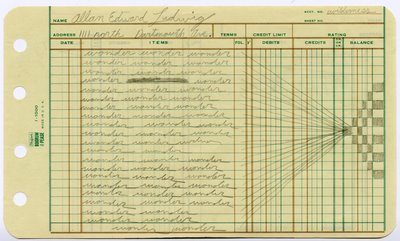 ACCT. NO.
NAME Allan Edward Ludwig SHEET NO.
ADDRESS 1111 north Dartmouth Ave. TERMS CREDIT LIMIT RATING
DATE ITEMS FOL. DEBITS CREDITS DR. OR CR. BALANCE
wonder wonder wonder
wonder wonder wonder
wonder wonder wonder
wonder wonder
wonder wonder wonder
wonder wonder wonder
wonder wonder wonder
wonder wonder wonder
wonder wonder wonder
wonder wonder wonder
wonder wonder wonder
wonder wonder wonder
wonder wonder wonder
wonder wonder wonder
wonder wonder wonder
wonder wonder wonder
wonder wonder wonder
wonder wonder wonder
wonder wonder wonder
wonder wonder wonder
wonder wonder